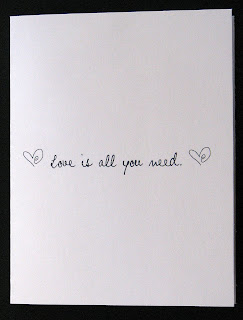 Love is all you need.